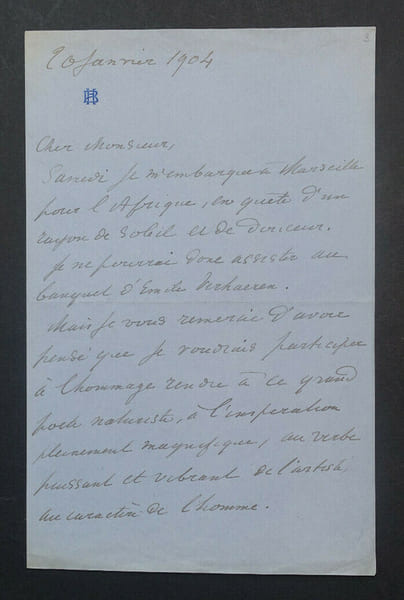 3
20 Janvier 1904
Cher Monsieur,
Samedi je m'embarque à Marseille
pour l'Afrique, en quête d'un
rayon de soleil et de douceur.
Je ne pourrai donc assister au
banquet d'Emile Verhaeren.
Mais je vous remercie d'avoir
pensé que je voudrais participer
à l'hommage rendu à ce grand
poète naturiste, à l'inspiration
pleinement magnifique, au verbe
puissant et vibrant de l'artiste,
au caractère de l'homme.